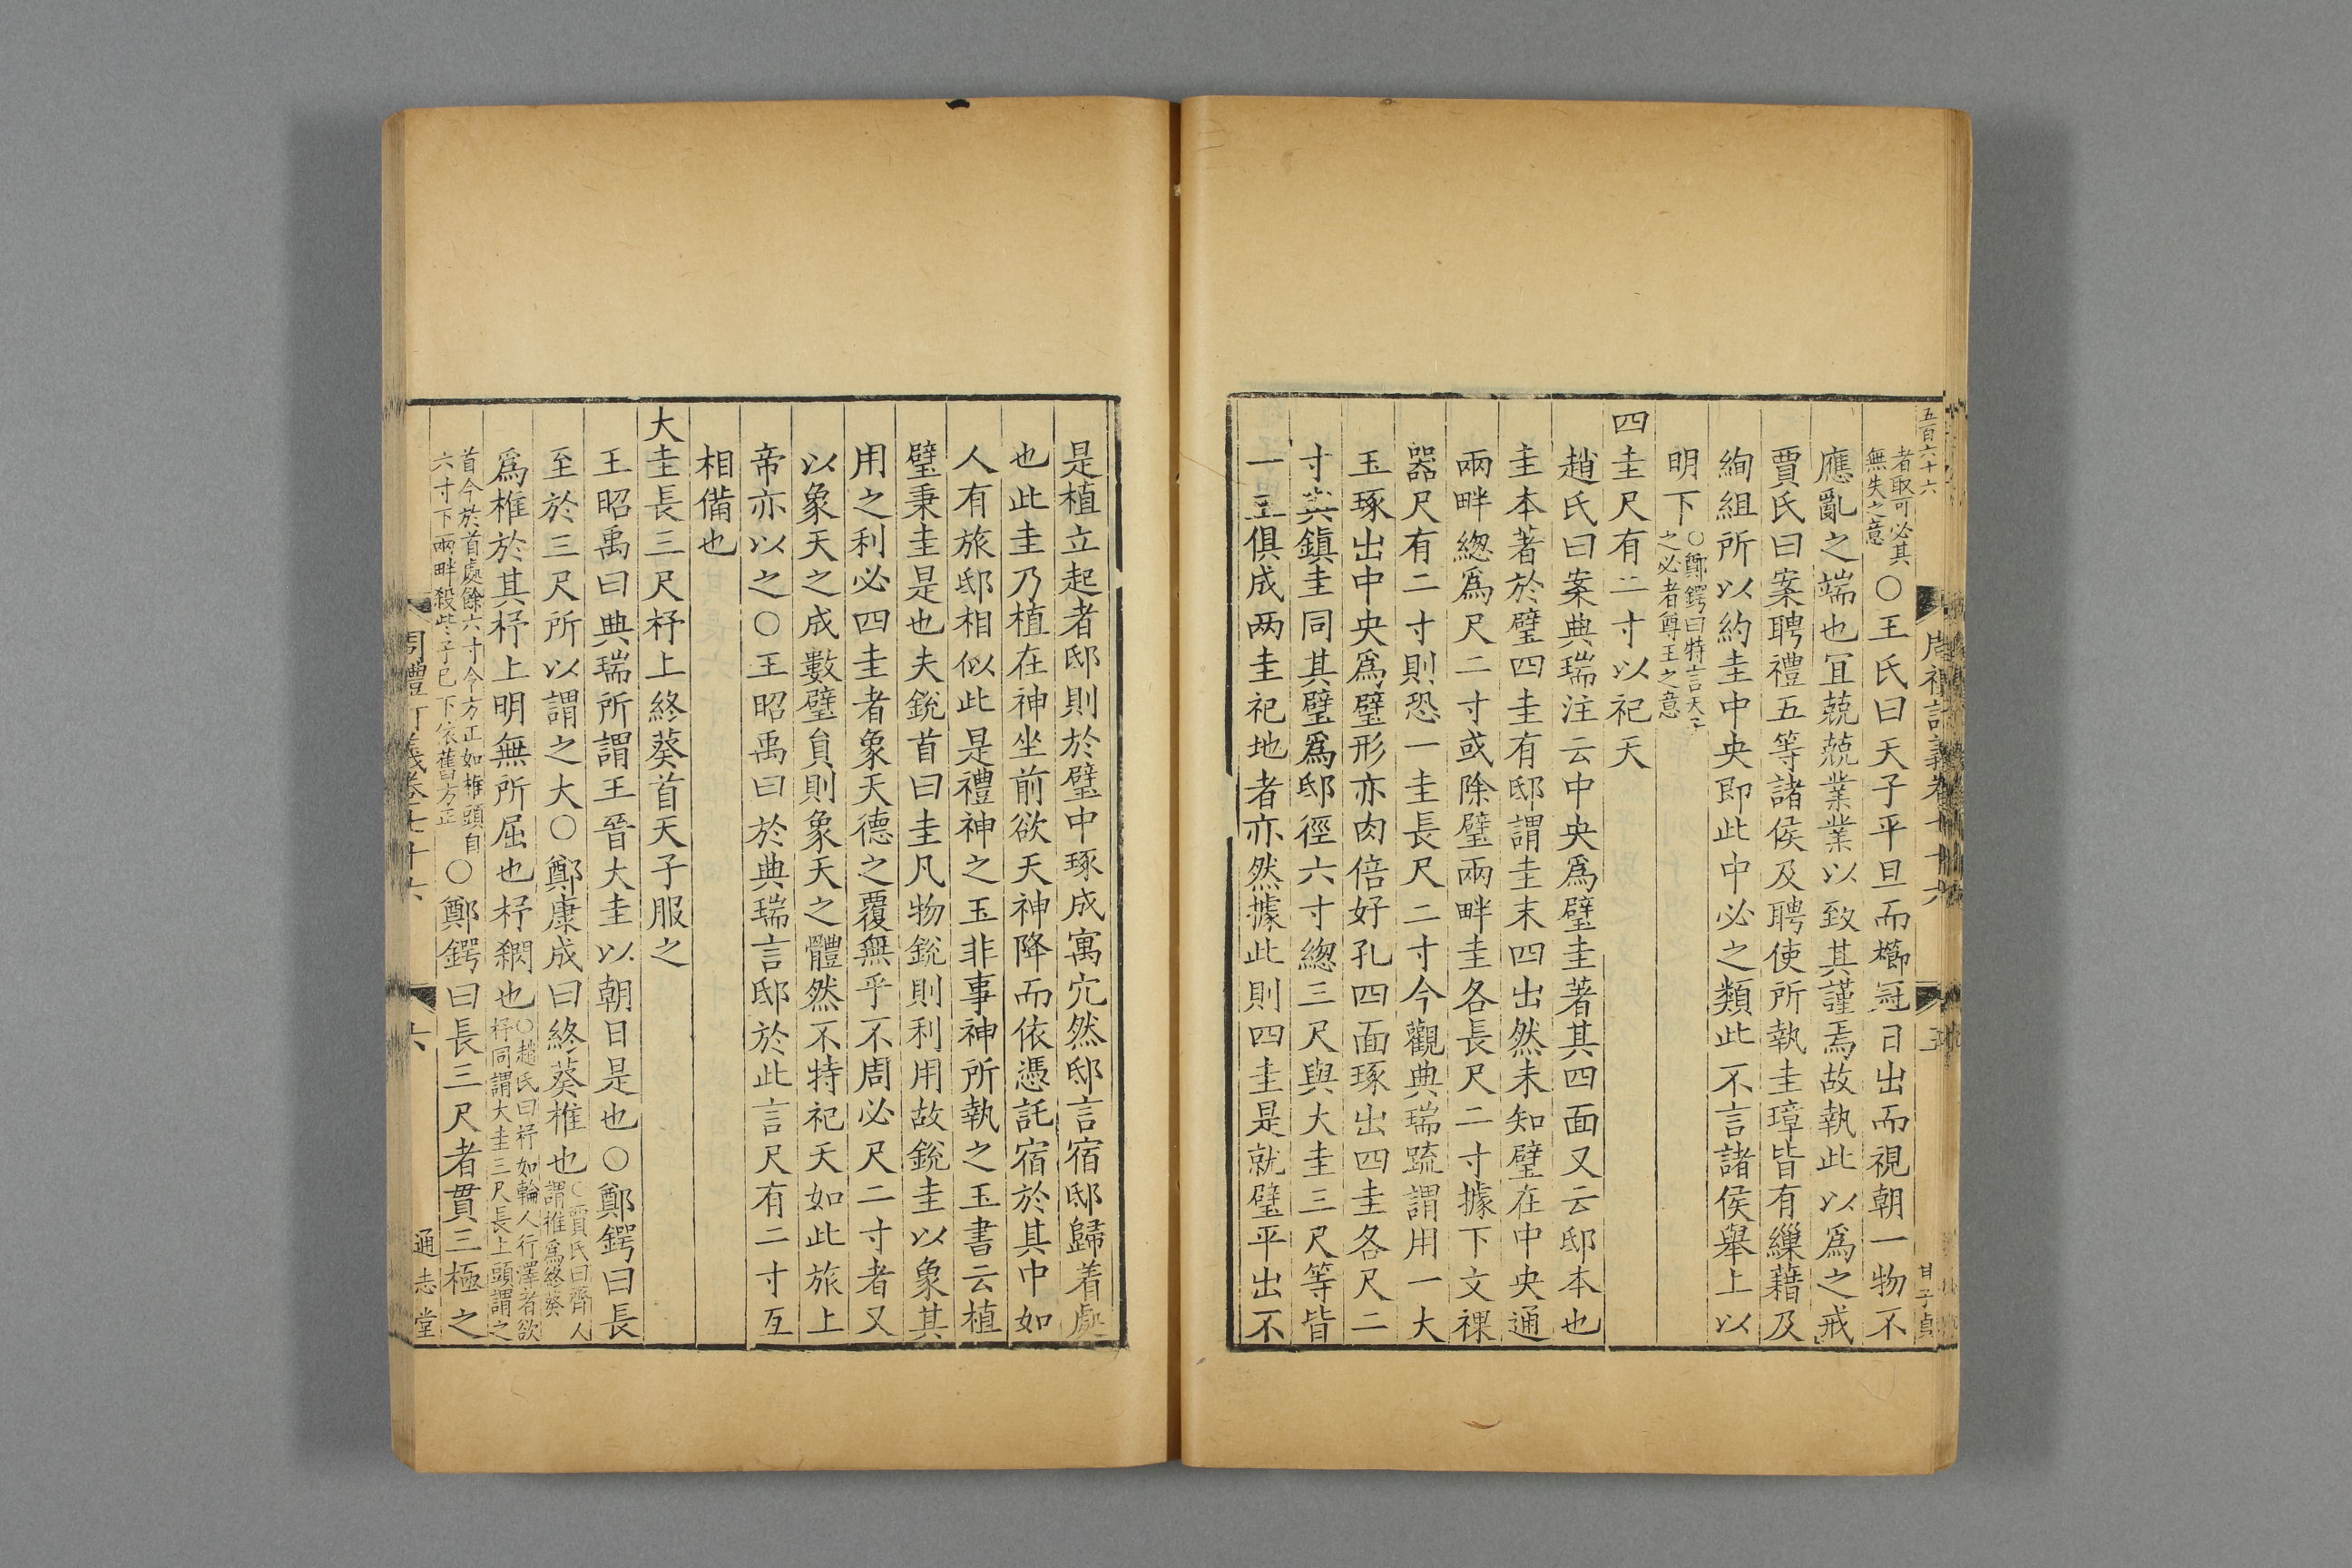 五百六十六
周禮訂義卷七十六
五
甘子貞
者取可必其
無失之意
○王氏曰天子平旦而櫛冠日出而視朝一物不
應亂之端也宜兢兢業業以致其謹焉故執此以爲之戒
賈氏曰案聘禮五等諸侯及聘使所執圭璋皆有繅藉及
絢組所以約圭中央即此中必之類此不言諸侯舉上以
明下
○鄭鍔曰特言天子
之必者尊王之意
四圭尺有二寸以祀天
趙氏曰案典瑞注云中央爲璧圭著其四面又云邸本也
圭本著於璧四圭有邸謂圭末四出然未知璧在中央通
兩畔緫爲尺二寸或除璧兩畔圭各長尺二寸據下文祼
器尺有二寸則恐一圭長尺二寸今觀典瑞疏謂用一大
玉琢出中央爲璧形亦肉倍好孔四面琢出四圭各尺二
寸與鎭圭同其璧爲邸徑六寸緫三尺與大圭三尺等皆
一玉俱成两圭祀地者亦然據此則四圭是就璧平出不
是植立起者邸則於璧中琢成寓宂然邸言宿邸歸着處
也此圭乃植在神坐前欲天神降而依憑託宿於其中如
人有旅邸相似此是禮神之玉非事神所執之玉書云植
璧秉圭是也夫銳首曰圭凡物銳則利用故銳圭以象其
用之利必四圭者象天德之覆無乎不周必尺二寸者又
以象天之成數璧負則象天之體然不特祀天如此旅上
帝亦以之○王昭禹曰於典瑞言邸於此言尺有二寸互
相備也
大圭長三尺杼上終葵首天子服之
王昭禹曰典瑞所謂王晉大圭以朝日是也○鄭鍔曰長
至於三尺所以謂之大○鄭康成曰終葵椎也
○賈氏曰齊人
謂椎爲終葵
爲椎於其杼上明無所屈也杼閷也
○趙氏曰杼如輪人行澤者欲
杼同謂大圭三尺長上頭謂之
首今於首處餘六寸令方正如椎頭自
六寸下兩畔殺些子已下依舊方正
○鄭鍔曰長三尺者貫三極之
周禮訂義卷七十六
六
通志堂